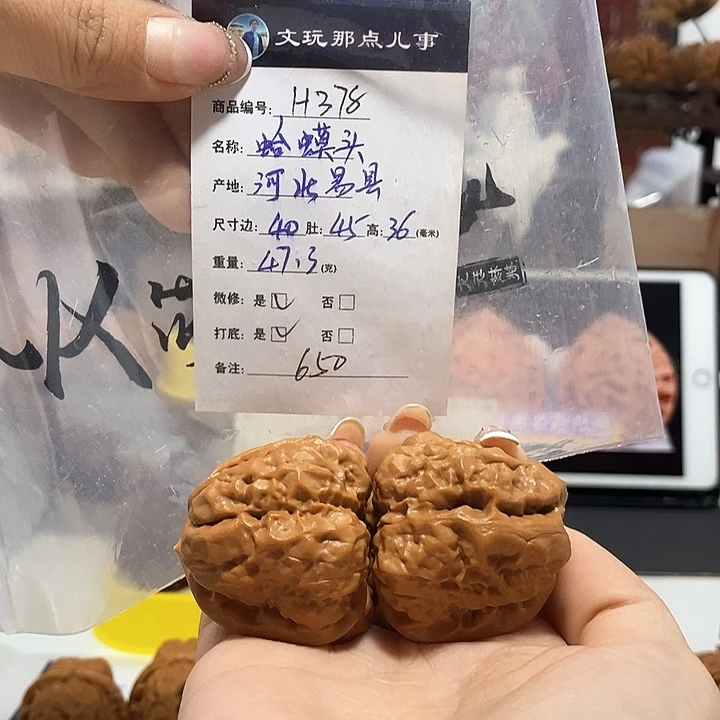 文玩那点儿事
商品编号: H378
名称: 蛤蟆头
产地: 河北易县
尺寸边: 40 肚: 45 高: 36 (毫米)
重量: 47.3 (克)
微修: 是☑ 否☐
打底: 是☑ 否☐
备注: 650